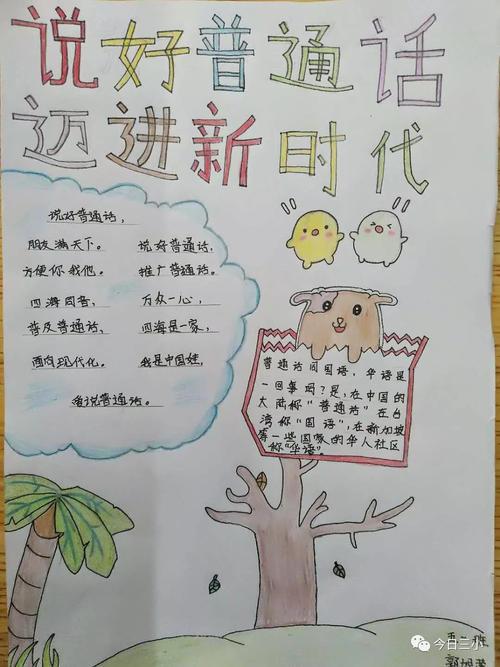 说好普通话
迈进新时代
说好普通话，
朋友满天下。 说好普通话，
方便你我他。 推广普通话。
四海同音， 万众一心，
普及普通话， 四海是一家，
面向现代化。 我是中国娃，
爱说普通话。
普通话同国语，华语是
一回事吗？是，在中国的
大陆称“普通话”在台
湾称“国语”，在新加坡
等一些国家的华人社区
称“华语”。
今日三小